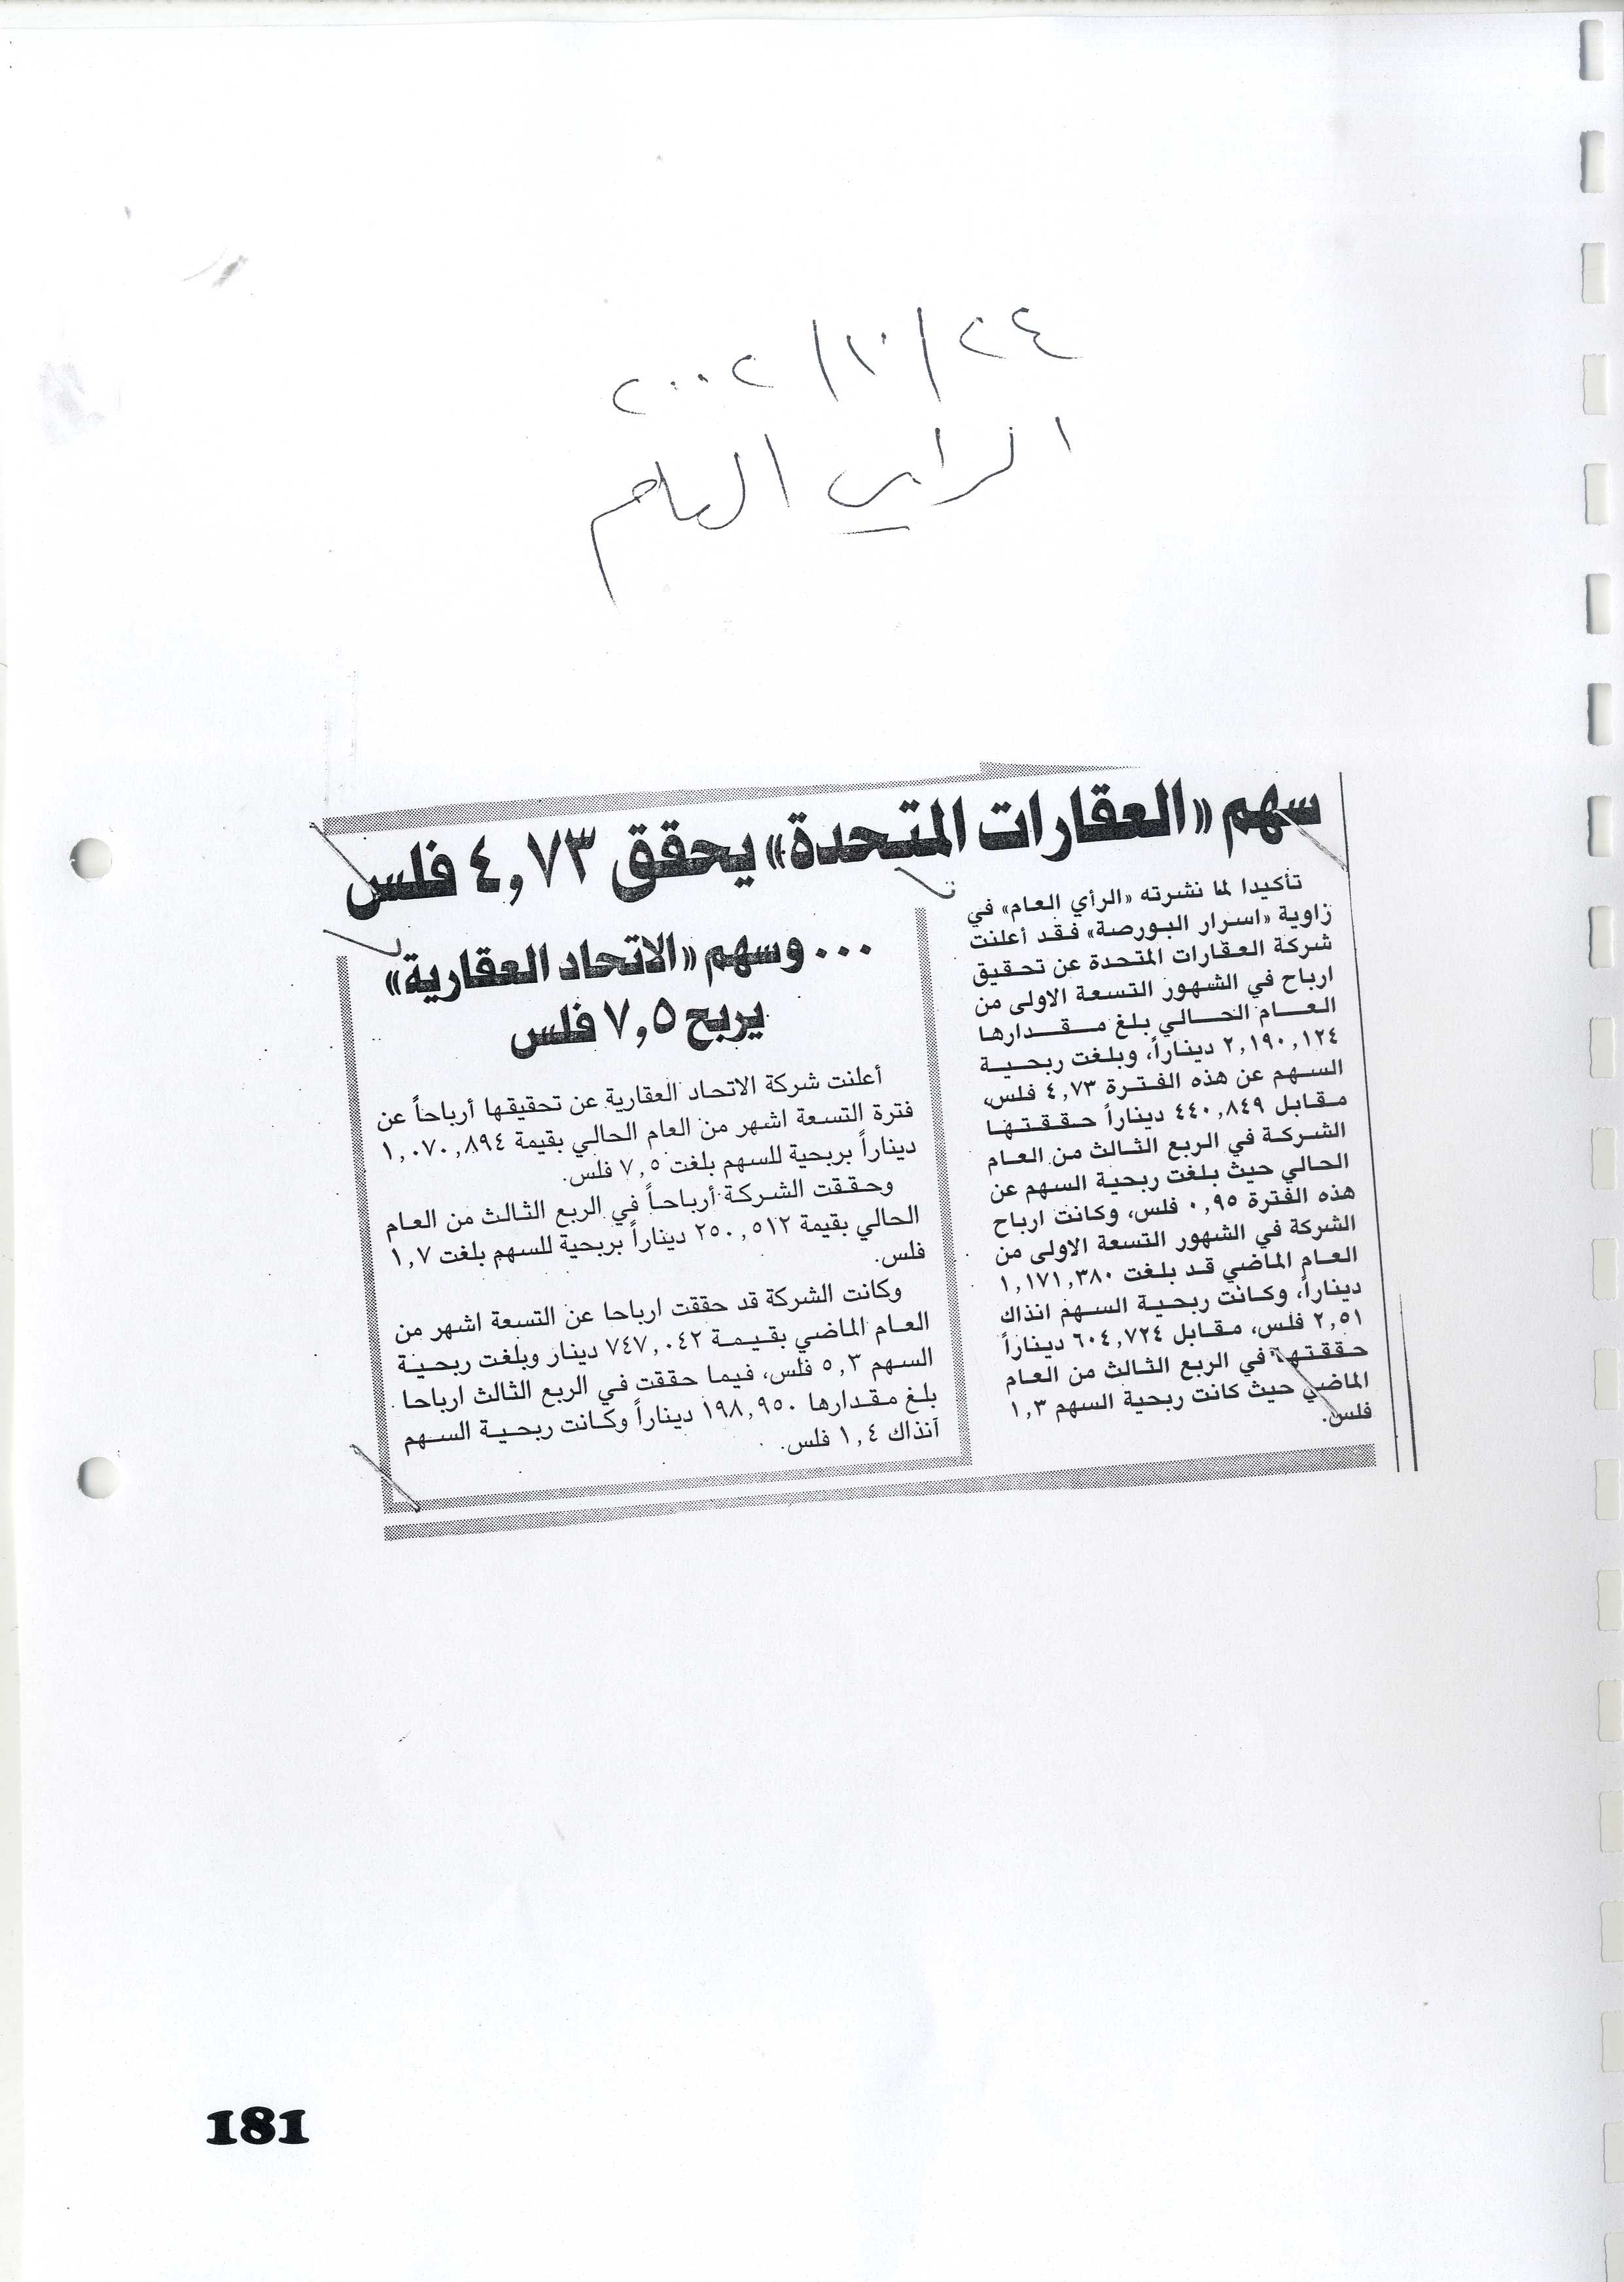 ٢٤/١٠/٢٠٠٢
الراي العام
سهم «العقارات المتحدة» يحقق ٤,٧٣ فلس
تأكيدا لما نشرته «الرأي العام» في
زاوية «اسرار البورصة» فقد أعلنت
شركة العقارات المتحدة عن تحقيق
ارباح في الشهور التسعة الاولى من
العام الحالي بلغ مقدارها
٢,١٩٠,١٢٤ ديناراً، وبلغت ربحية
السهم عن هذه الفترة ٤,٧٣ فلس،
مقابل ٤٤٠,٨٤٩ ديناراً حققتها
الشركة في الربع الثالث من العام
الحالي حيث بلغت ربحية السهم عن
هذه الفترة ٠,٩٥ فلس، وكانت ارباح
الشركة في الشهور التسعة الاولى من
العام الماضي قد بلغت ١,١٧١,٣٨٠
ديناراً، وكانت ربحية السهم انذاك
٢,٥١ فلس، مقابل ٦٠٤,٧٢٤ ديناراً
حققتها في الربع الثالث من العام
الماضي حيث كانت ربحية السهم ١,٣
فلس.
... وسهم «الاتحاد العقارية»
يربح ٧,٥ فلس
أعلنت شركة الاتحاد العقارية عن تحقيقها أرباحاً عن
فترة التسعة اشهر من العام الحالي بقيمة ١,٠٧٠,٨٩٤
ديناراً بربحية للسهم بلغت ٧,٥ فلس.
وحققت الشركة أرباحاً في الربع الثالث من العام
الحالي بقيمة ٢٥٠,٥١٢ ديناراً بربحية للسهم بلغت ١,٧
فلس.
وكانت الشركة قد حققت ارباحا عن التسعة اشهر من
العام الماضي بقيمة ٧٤٧,٠٤٢ دينار وبلغت ربحية
السهم ٥,٣ فلس، فيما حققت في الربع الثالث ارباحا
بلغ مقدارها ١٩٨,٩٥٠ ديناراً وكانت ربحية السهم
آنذاك ١,٤ فلس.
181